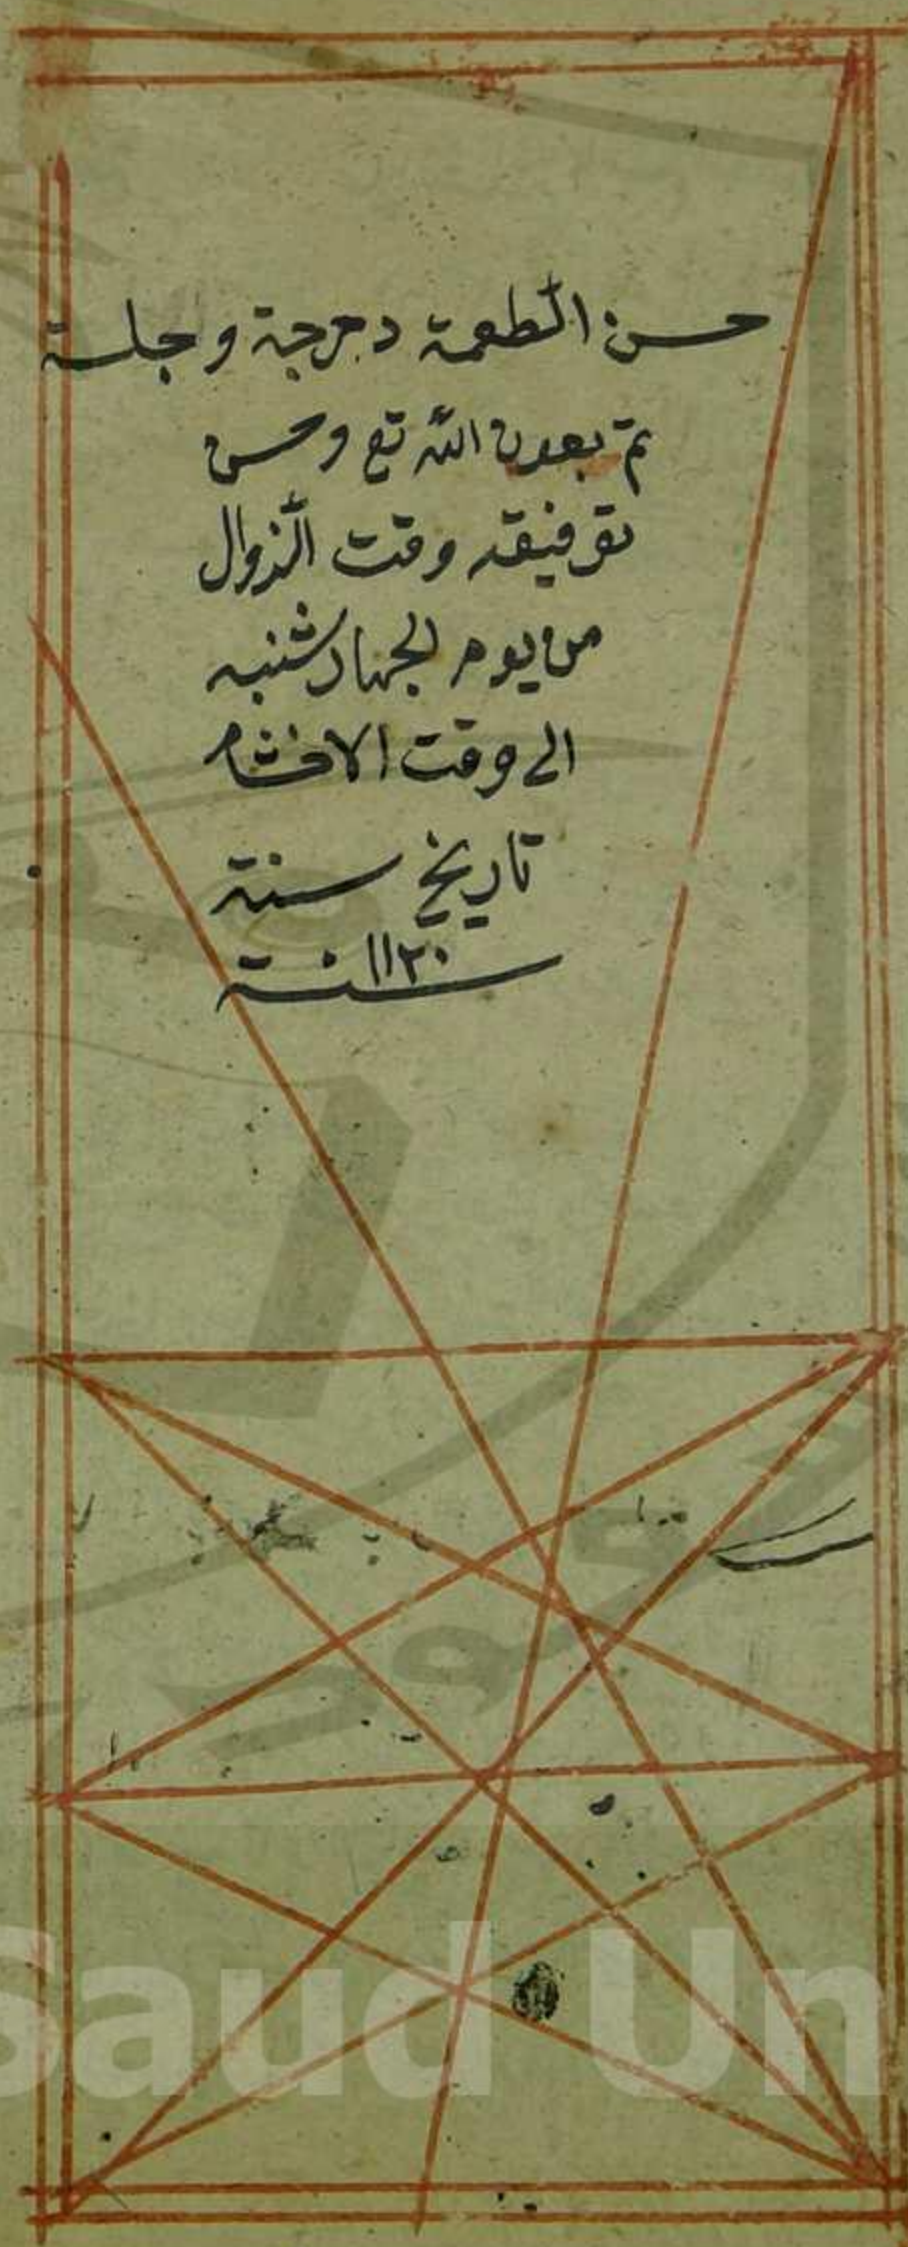 حسن الطعمة دحرجة وجلسة
تم بعون الله تع وحسن
توفيقه وقت الزوال
من يوم الجهارشنبه
الى وقت
تاريخ سنة
سنة ١١٢٠
Saud Un